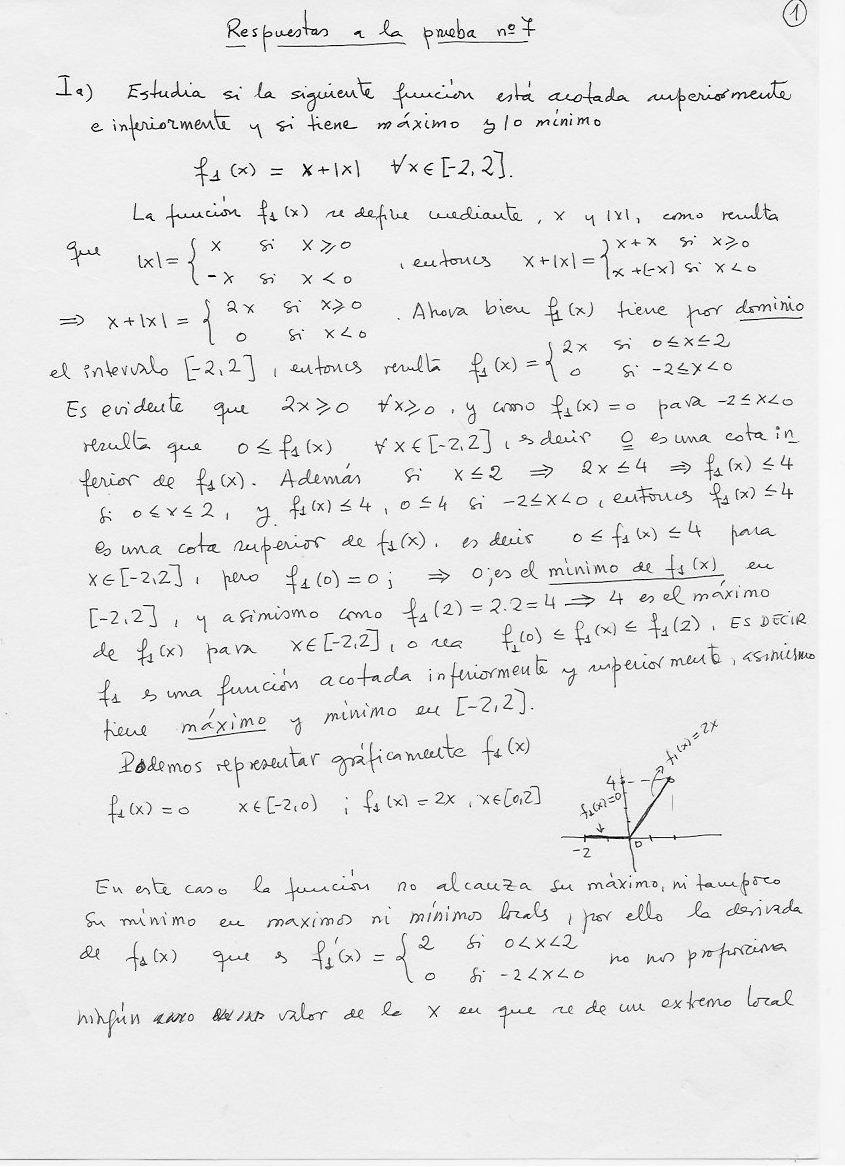 1
Respuestas a la prueba nº 7
Ia) Estudia si la siguiente función está acotada superiormente
e inferiormente y si tiene máximo y/o mínimo
f₁(x) = x+|x| ∀x∈[-2,2].
La función f₁(x) se define mediante, x y |x|, como resulta
que |x| = { x si x⩾0 , entonces x+|x| = { x+x si x⩾0
-x si x<0 x+(-x) si x<0
⇒ x+|x| = { 2x si x⩾0 . Ahora bien f₁(x) tiene por dominio
0 si x<0
el intervalo [-2,2], entonces resulta f₁(x) = { 2x si 0≤x≤2
0 si -2≤x<0
Es evidente que 2x⩾0 ∀x⩾0, y como f₁(x)=0 para -2≤x<0
resulta que 0≤f₁(x) ∀x∈[-2,2], es decir 0 es una cota in
ferior de f₁(x). Además si x≤2 ⇒ 2x≤4 ⇒ f₁(x)≤4
si 0≤x≤2, y f₁(x)≤4, 0≤4 si -2≤x<0, entonces f₁(x)≤4
es una cota superior de f₁(x). es decir 0≤f₁(x)≤4 para
x∈[-2,2], pero f₁(0)=0; ⇒ 0; es el mínimo de f₁(x) en
[-2,2], y asimismo como f₁(2)=2.2=4 ⇒ 4 es el máximo
de f₁(x) para x∈[-2,2], o sea f₁(0)≤f₁(x)≤f₁(2), ES DECIR
f₁ es una función acotada inferiormente y superiormente, asimismo
tiene máximo y mínimo en [-2,2].
Podemos representar gráficamente f₁(x)
f₁(x)=0 x∈[-2,0) ; f₁(x)=2x, x∈[0,2]
f₁(x)=2x
4
f₁(x)=0
-2
0
En este caso la función no alcanza su máximo, ni tampoco
su mínimo en maximos ni mínimos locals, por ello la derivada
de f₁(x) que es f₁'(x) = { 2 si 0<x<2 no nos proporciona
0 si -2<x<0
ningún valor de la x en que se de un extremo local